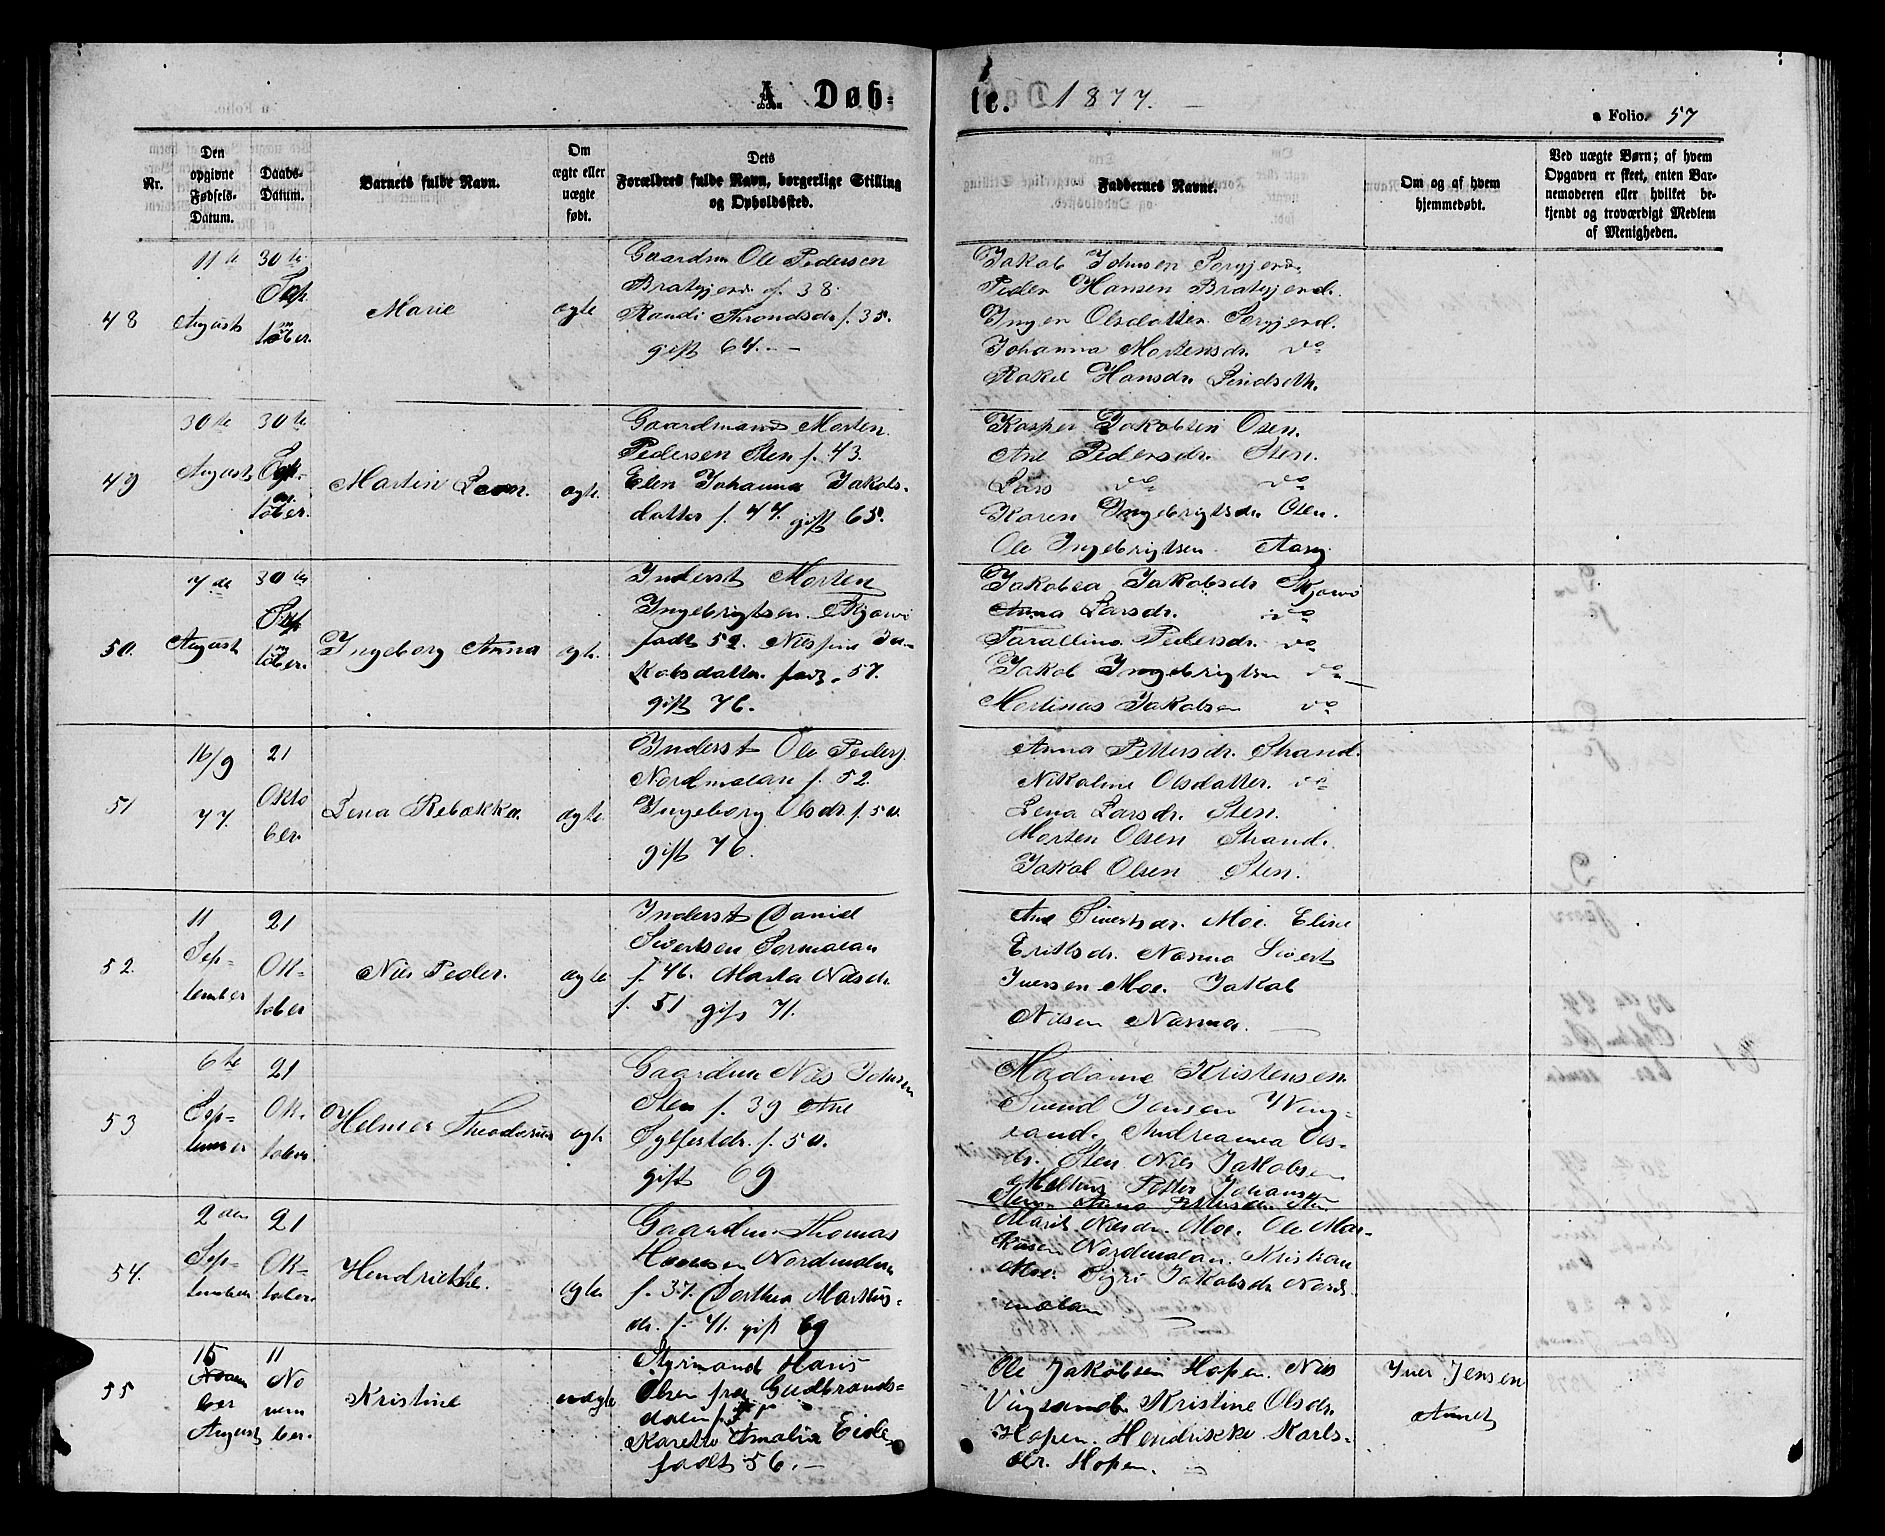 A. Døb-
te. 1877.
a Folio. 57
Nr.
Den opgivne Fødsels-Datum.
Daabs-Datum.
Barnets fulde Navn.
Om ægte eller uægte født.
Dets Forældres fulde Navn, borgerlige Stilling og Opholdssted.
Faddernes Navne.
Om og af hvem hjemmedøbt.
Ved uægte Børn; af hvem Opgaven er skeet, enten Barnemoderen eller hvilket bekjendt og troværdigt Medlem af Menigheden.
48
11te
August
30te
Marie
ægte
Gaardm Ole Pedersen
Bratgjerd f. 38.
Randi Throndsdr f. 35.
gift 64.
Jakob Johnsen
Peder Hansen Bratgjerd.
Inger Olsdatter
Johanna Mortensdr. do
Rakel Hansdr.
49
30te
August
30te
Martin
ægte.
Gaardmand Morten
Pedersen Sten f. 43.
Elen Johanna Jakobs-
datter f. 44. gift 65.
Kasper Jakobsen Osen.
Ane Pedersdr. Sten.
Lars do do
Karen Ingebrigtsdr Osen.
Ole Ingebrigtsen
50.
7de
August
30te
Ingeborg Anna
ægte.
Inderst Morten
Ingebrigtsen
født 52. Nilsine Ja-
kobsdatter født. 57.
gift 76.
Jakobea Jakobsdr
Anna Larsdr. do
Pedersdr. do
Jakob Ingebrigtsen do
Martinus Jakobsen do
51
16/9
77.
21
Okto
ber.
Lena Rebekka
ægte
Inderst Ole Peders
Nordmelan f. 52.
Ingeborg Olsdr. f. 50.
gift 76.
Anna Pettersdr. Strand.
Nikoline Olsdatter. do
Lena Larsdr. Sten.
Morten Olsen Strand.
Jakob Olsen Sten.
52.
11
Sep-
tember
21
Ok-
tober
Nils Peder.
ægte
Inderst Daniel
Sivertsen Sørmelan
f. 46. Marta Nilsdr.
f. 51 gift 71.
Ane Sivertsdr. Moe. Eline
Eriksdr. Sivert
Iversen Moe. Jakob
Nilsen
53
6te
Sep-
tember
21
Ok-
tober
Helmer Theodorius
ægte
Gaardm Nils Johnsen
Sten f. 39 Ane
Sylfestdr. f. 50.
gift 69
Madame Kristensen.
Svend Jensen Ving-
vand. Andreanna Ols-
dr. Sten. Nils Jakobsen
Petter Johansen
Sten. Anna Pettersdr Sten
54.
2den
Sep-
tember
21
Ok-
tober
Hendrikke.
ægte
Gaardm Thomas
Hansen Nordmelan
f. 37. Dorthea Markus-
dr. f. 41. gift 69
Marit Nilsdr. Moe. Ole Mar-
kusen Nordmelan. Kristian
Moe. Sigri Jakobsdr Nord-
melan
55
15
August
11
No
vem
ber.
Kristine
uægte
Styrmand Hans
Olsen fra Gudbrands-
dalen f.
Karette Amalia Eide
født 56.
Ole Jakobsen Hopen. Nils
Vingvand. Kristine Olsdr.
Hopen. Hendrikke Karls-
dr. Hopen.
Iver Jensen